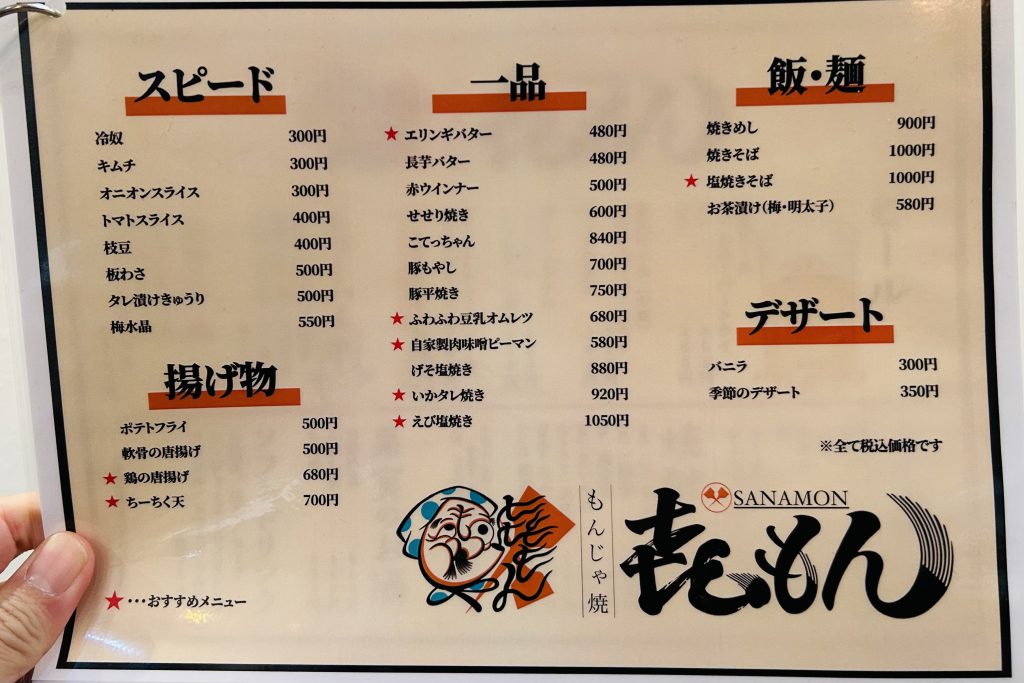 スピード
冷奴 300円
キムチ 300円
オニオンスライス 300円
トマトスライス 400円
枝豆 400円
板わさ 500円
タレ漬けきゅうり 500円
梅水晶 550円
揚げ物
ポテトフライ 500円
軟骨の唐揚げ 500円
★ 鶏の唐揚げ 680円
★ ちーちく天 700円
★・・・おすすめメニュー
一品
★ エリンギバター 480円
長芋バター 480円
赤ウインナー 500円
せせり焼き 600円
こてっちゃん 840円
豚もやし 700円
豚平焼き 750円
★ ふわふわ豆乳オムレツ 680円
★ 自家製肉味噌ピーマン 580円
げそ塩焼き 880円
★ いかタレ焼き 920円
★ えび塩焼き 1050円
飯・麺
焼きめし 900円
焼きそば 1000円
★ 塩焼きそば 1000円
お茶漬け(梅・明太子) 580円
デザート
バニラ 300円
季節のデザート 350円
※全て税込価格です
もんじゃ焼
SANAMON
もん